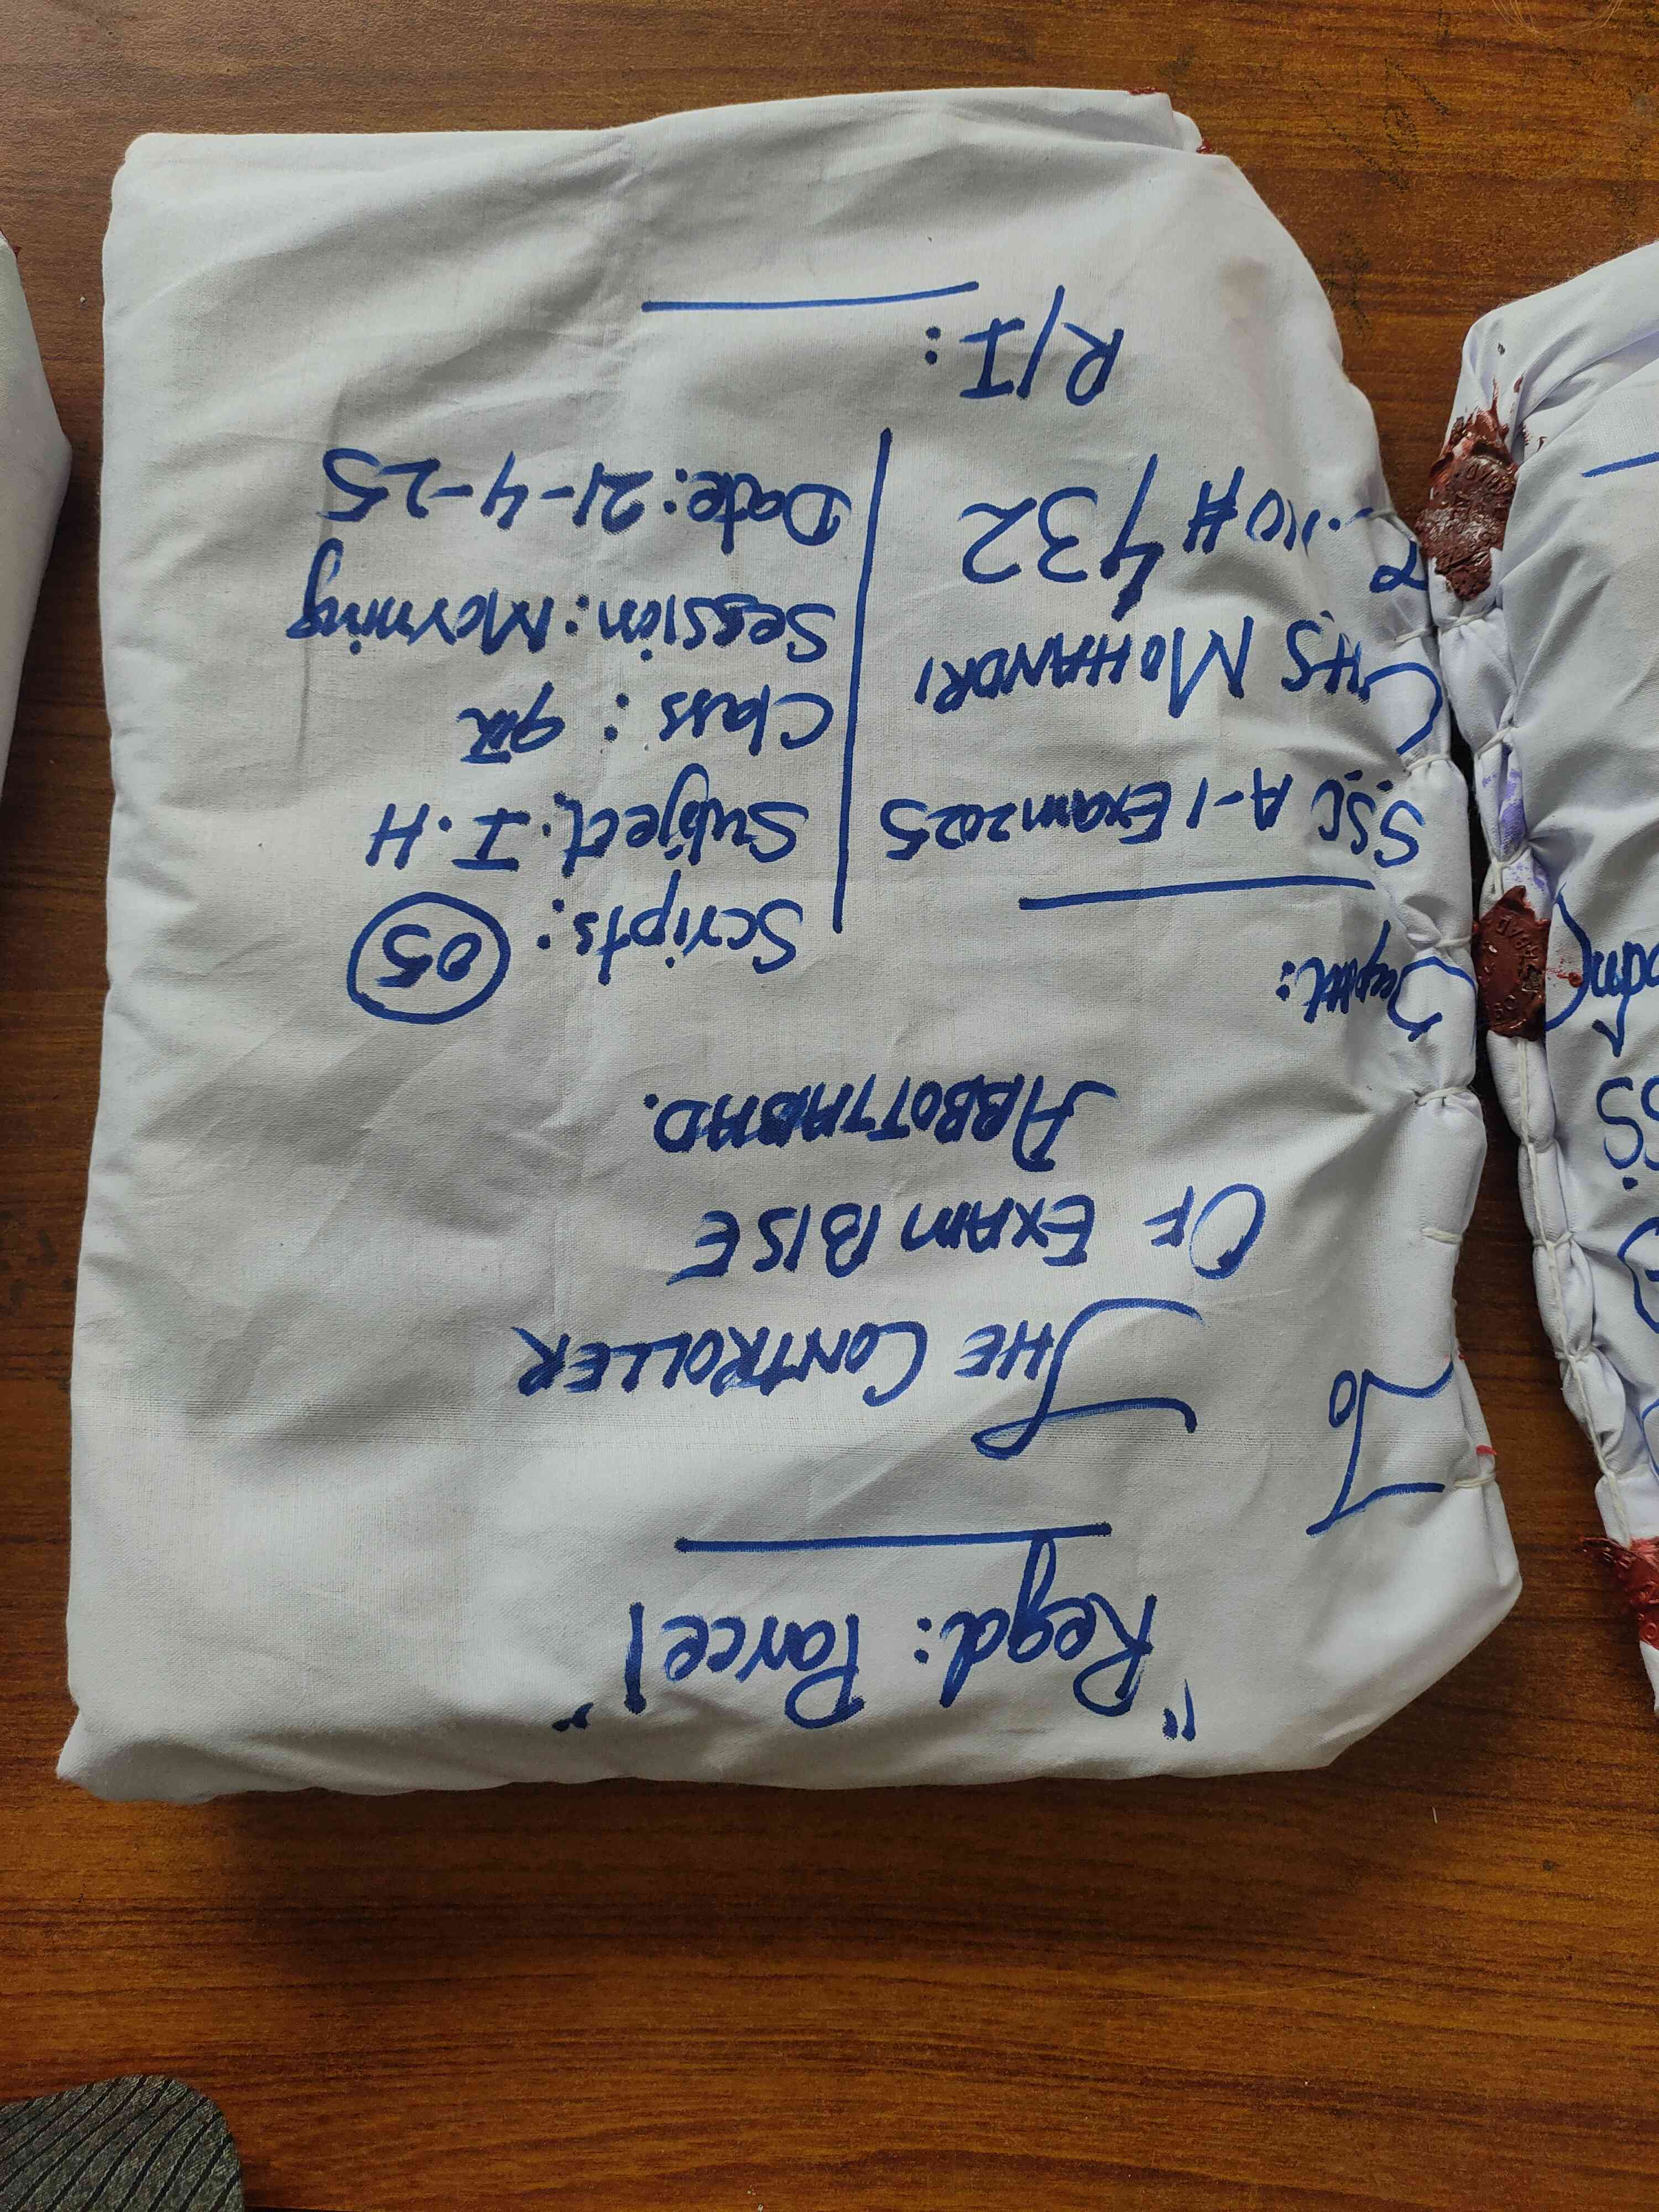 "Regd: Parcel"
To
THE CONTROLLER
OF EXAM BISE
ABBOTTABAD.
Scripts: 05
SSC A-1 Exam 2025
Subject: I.H
GHS MOHANDRI
Class: 9th
432
Session: Morning
Date: 21-4-25
R/I: